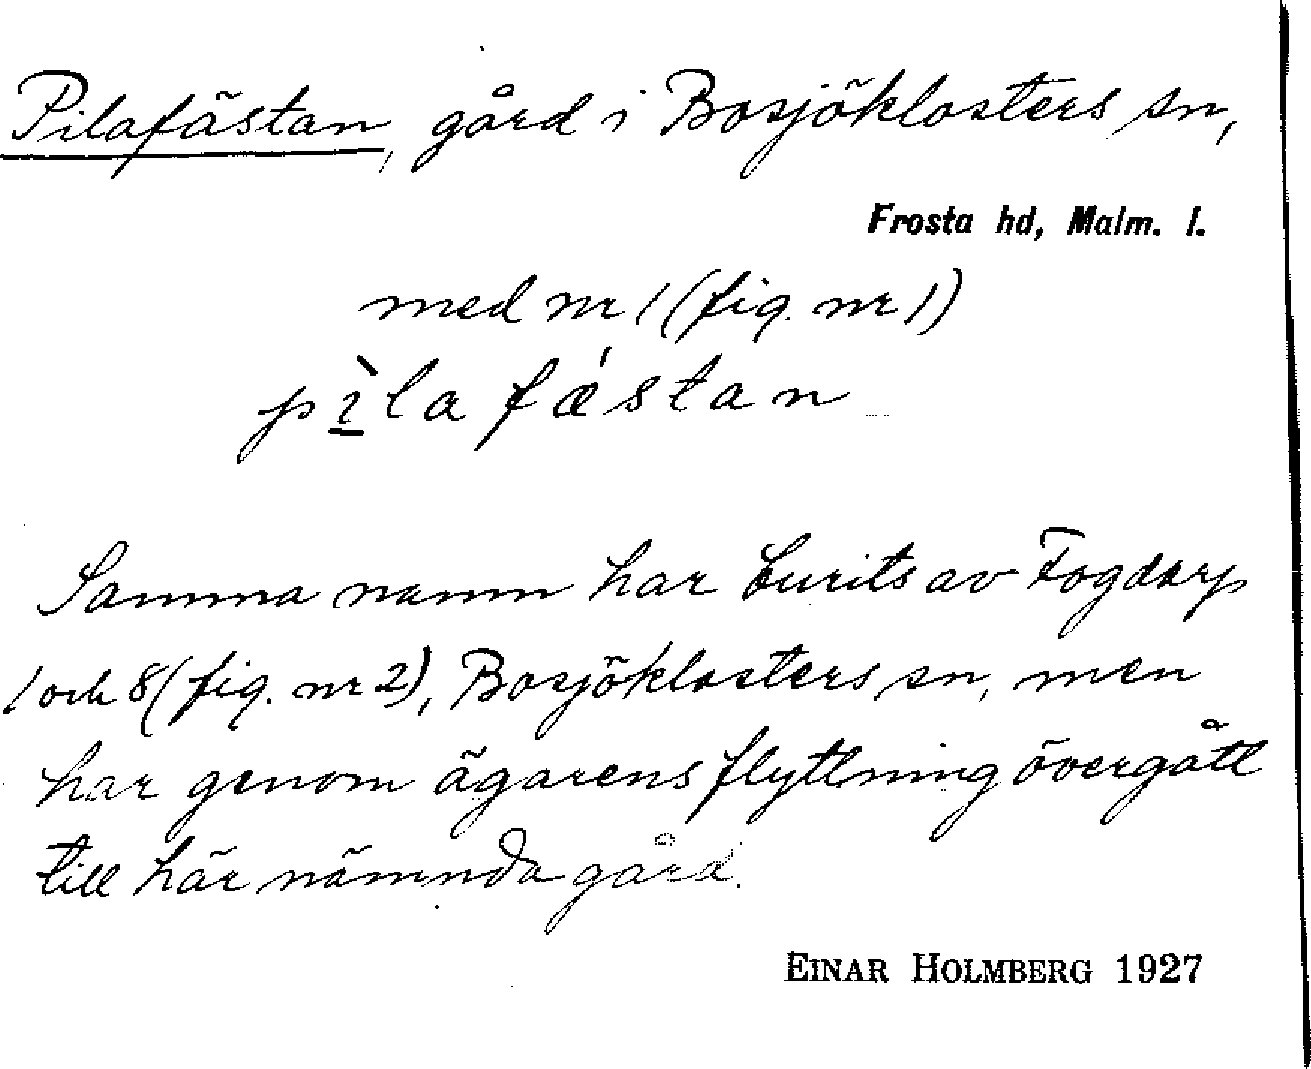 Pilafästan, gård i Bosjöklosters sn,
Frosta hd, Malm. l.
med nr 1 (fig. nr 1)
pìla fǽstan
Samma namn har burits av Fogdarp
1 och 8 (fig. nr 2), Bosjöklosters sn, men
har genom ägarens flyttning övergått
till här nämnda gård.
EINAR HOLMBERG 1927